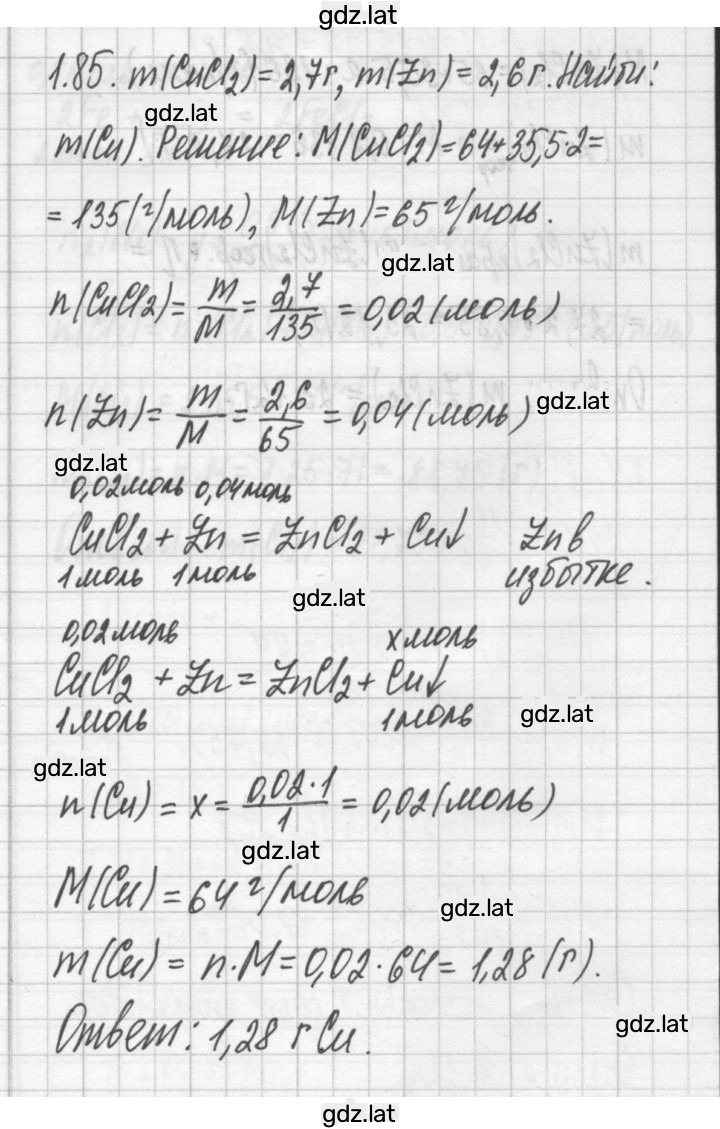 gdz.lat
1.85. m(CuCl2)=2,7г, m(Zn)=2,6г. Найти:
gdz.lat
m(Cu). Решение: M(CuCl2)=64+35,5·2=
=135(г/моль), M(Zn)=65 г/моль.
gdz.lat
n(CuCl2)= m/M = 2,7/135 = 0,02(моль)
n(Zn)= m/M = 2,6/65 = 0,04(моль)
gdz.lat
gdz.lat
0,02моль 0,04моль
CuCl2 + Zn = ZnCl2 + Cu↓ Zn в
1моль 1моль избытке.
gdz.lat
0,02моль xмоль
CuCl2 + Zn = ZnCl2 + Cu↓
1моль 1моль
gdz.lat
gdz.lat
n(Cu) = x = 0,02·1/1 = 0,02(моль)
gdz.lat
M(Cu) = 64 г/моль
gdz.lat
m(Cu) = n·M = 0,02·64 = 1,28 (г).
Ответ: 1,28 г Cu.
gdz.lat
gdz.lat